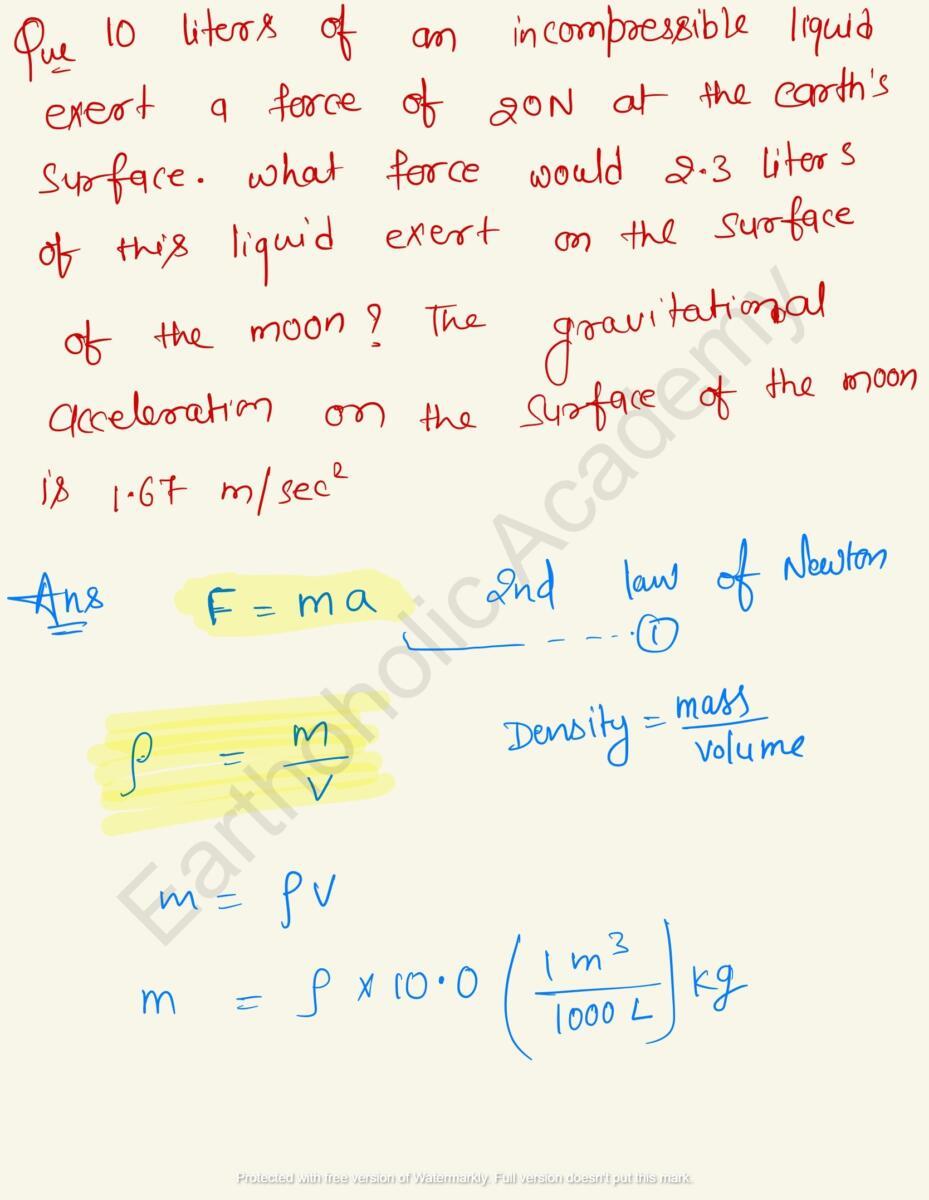 Que 10 liters of an incompressible liquid
exert a force of 20N at the earth's
surface. what force would 2.3 liters
of this liquid exert on the surface
of the moon? The gravitational
acceleration on the surface of the moon
is 1.67 m/sec²
Ans F = ma 2nd law of Newton
- - - - - ①
ρ = m/V Density = mass/volume
m = ρV
m = ρ × 10.0 (1 m³/1000 L) kg
Earthoholic Academy
Protected with free version of Watermarkly. Full version doesn't put this mark.